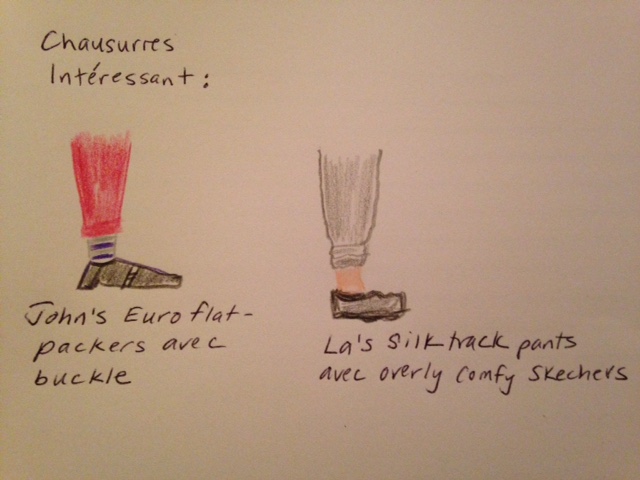 Chausurres
Intéressant:
John's Euro flat-
packers avec
buckle
La's silk track pants
avec overly comfy Skechers